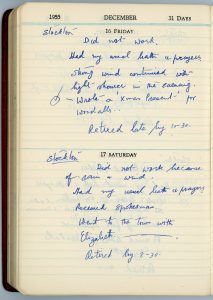 1955 DECEMBER 31 DAYS
16 FRIDAY
Stockton
Did not work.
Had my usual bath & prayers
Strong wind continued with
light shower in the evening.
Wrote a 'Xmas
Retired late by 10-30.
17 SATURDAY
Stockton
Did not work because
of rain & wind.
Had my usual bath & prayers
Received Spokesman.
Went to the town with
Elizabeth.
Retired by 8-30.